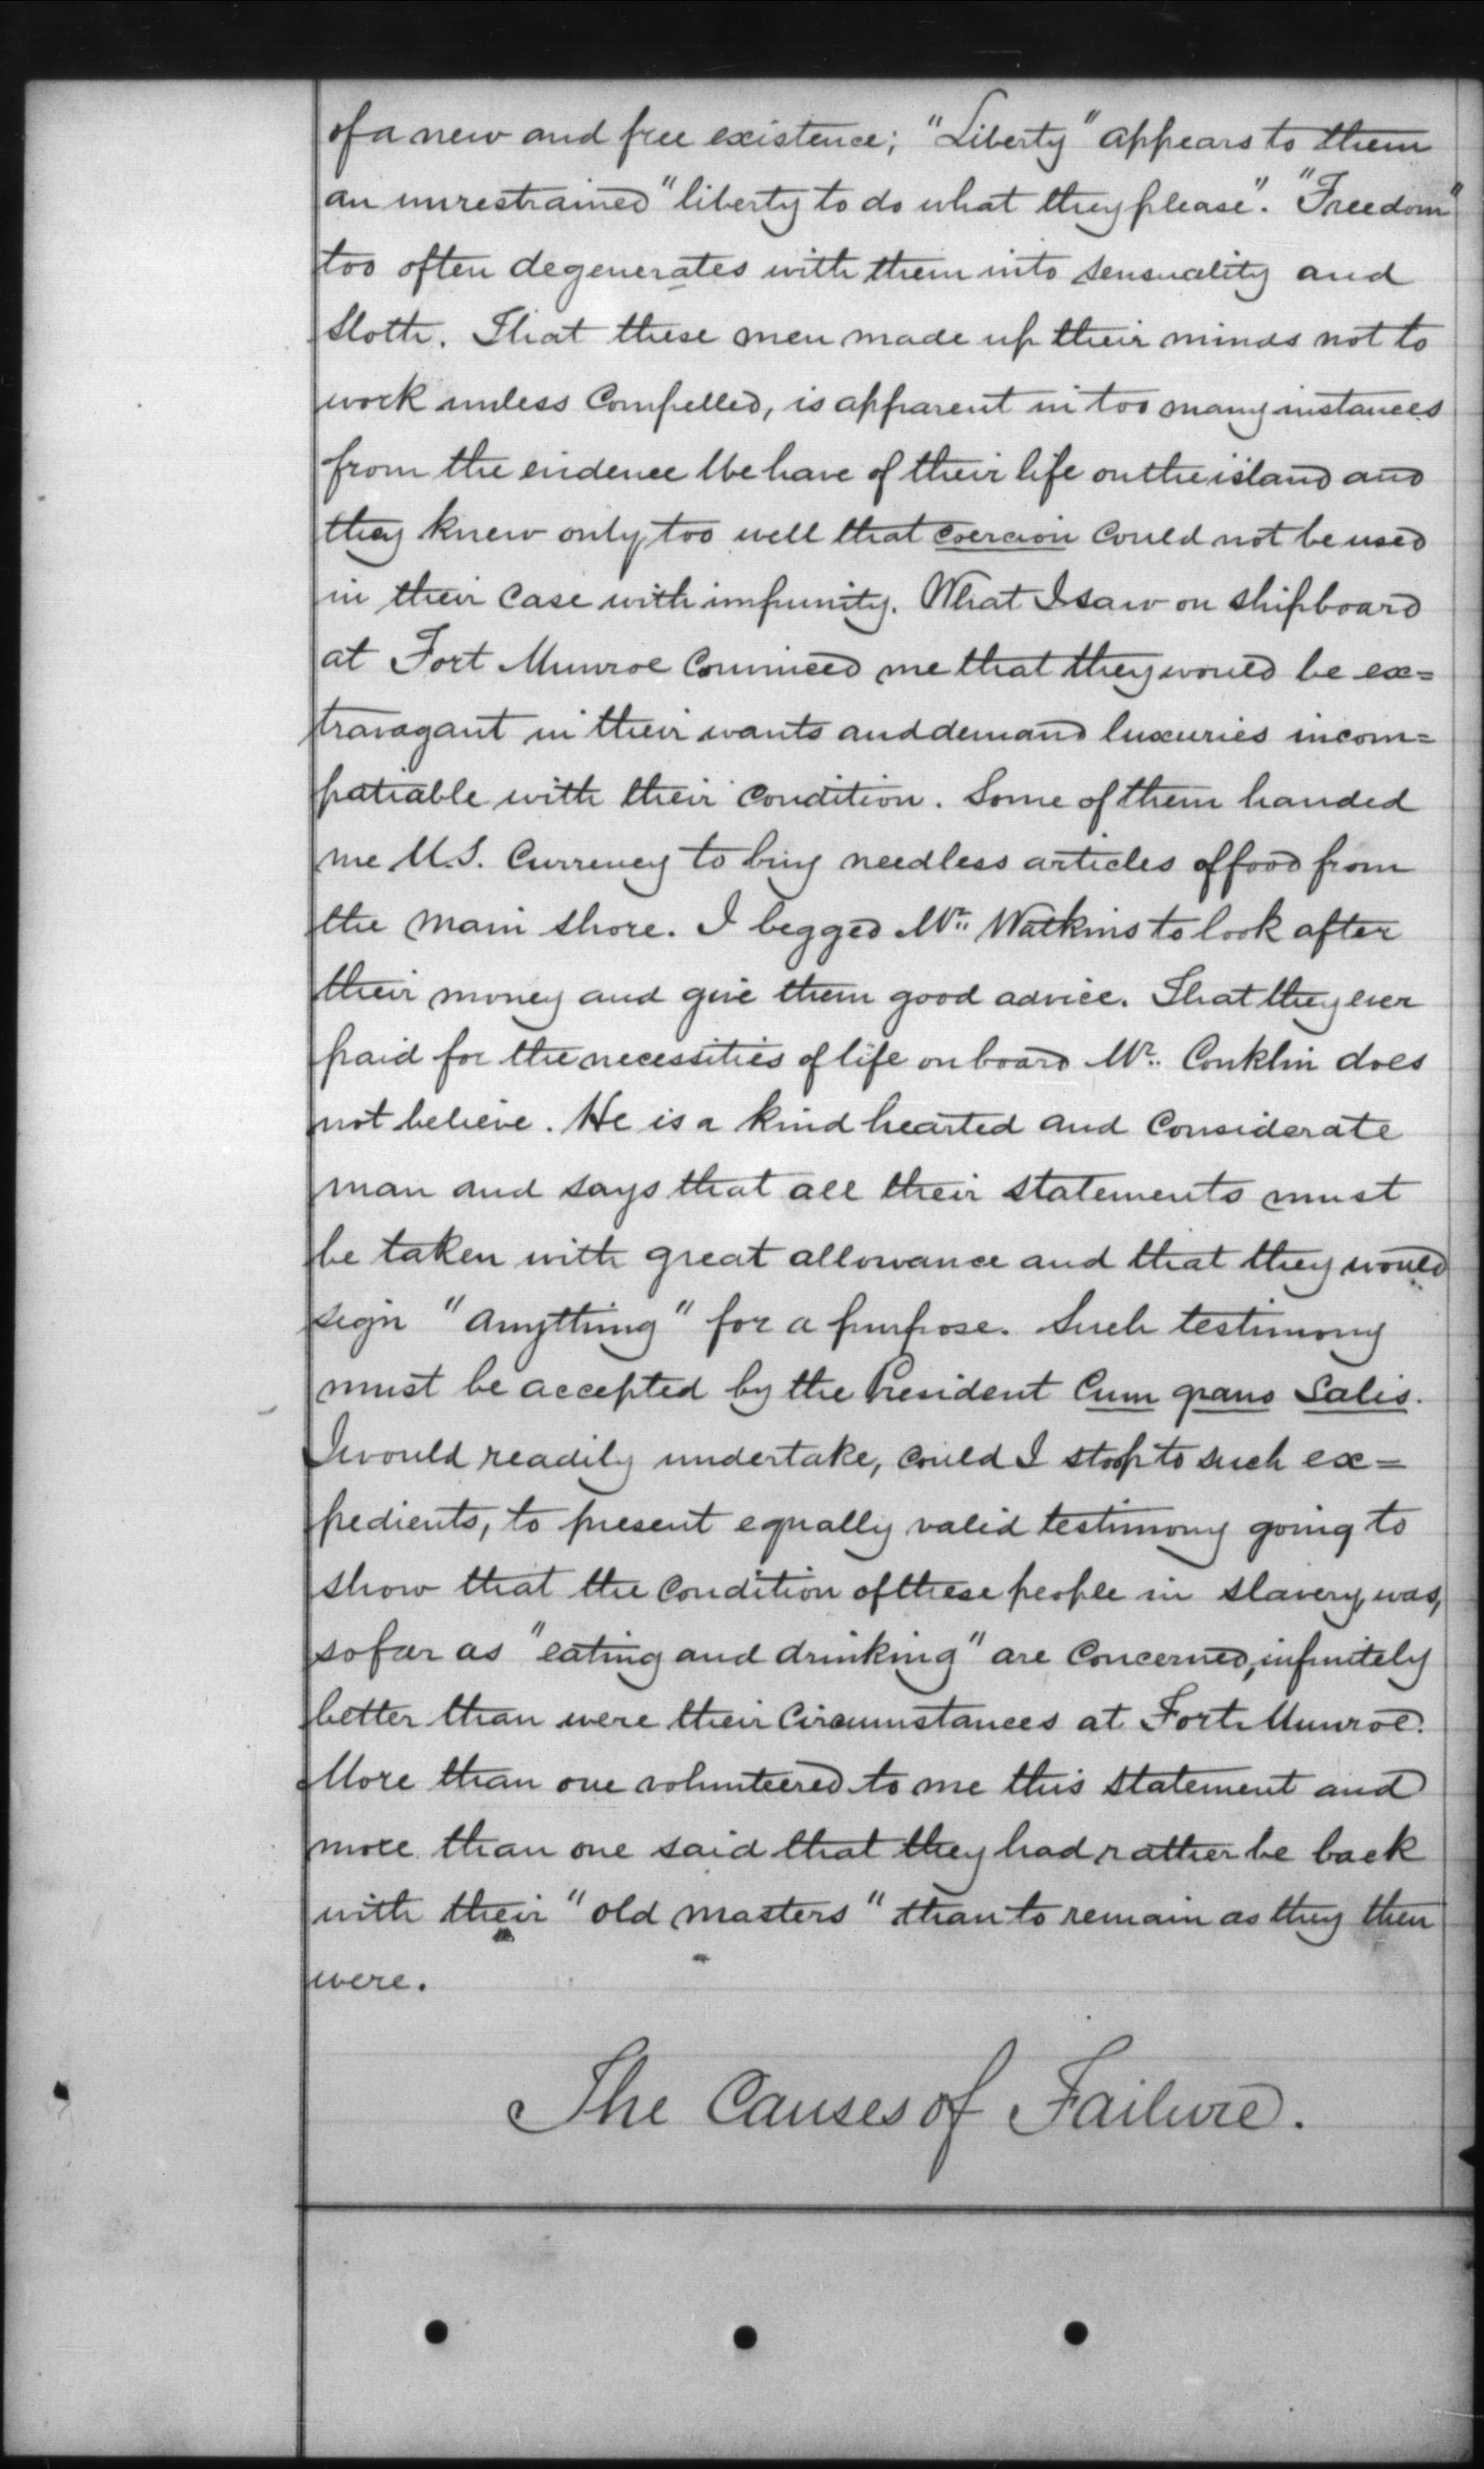 of a new and free existence; "Liberty" appears to them
an unrestrained "liberty to do what they please". "Freedom"
too often degenerates with them into sensuality and
sloth. That these men made up their minds not to
work unless Compelled, is apparent in too many instances
from the evidence We have of their life on the island and
they knew only too well that Coercion Could not be used
in their Case with impunity. What I saw on shipboard
at Fort Munroe Convinced me that they would be ex=
travagant in their wants and demand luxuries incom=
patiable with their Condition. Some of them handed
me U.S. Currency to buy needless articles of food from
the main shore. I begged Mr. Watkins to look after
their money and give them good advice. That they ever
paid for the necessities of life on board Mr. Conklin does
not believe. He is a kind hearted and Considerate
man and says that all their statements must
be taken with great allowance and that they would
sign "Anything" for a purpose. Such testimony
must be accepted by the President Cum grano Salis.
I would readily undertake, could I stoop to such ex=
pedients, to present equally valid testimony going to
show that the Condition of these people in slavery, was,
so far as "eating and drinking" are Concerned, infinitely
better than were their Circumstances at Fort Munroe.
More than one volunteered to me this statement and
more than one said that they had rather be back
with their "old masters" than to remain as they then
were.
The Causes of Failure.